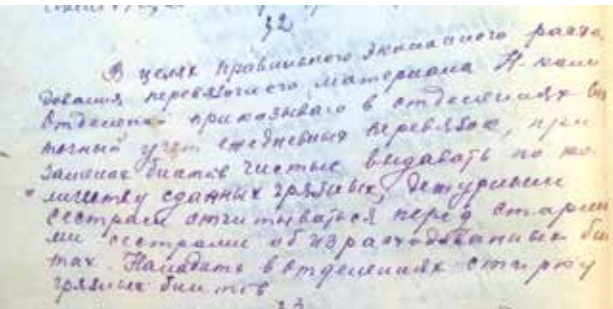 32
В целях правильного экономного расхо
дования перевязочного материала Н-кам
отделений приказываю в отделениях
точный учет ежедневных перевязок, при
замене бинтов чистые выдавать по ко
личеству сданных грязных, дежурным
сестрам отчитываться перед старши
ми сестрами об израсходованных бин
тах. Наладить в отделениях стирку
грязных бинтов
33